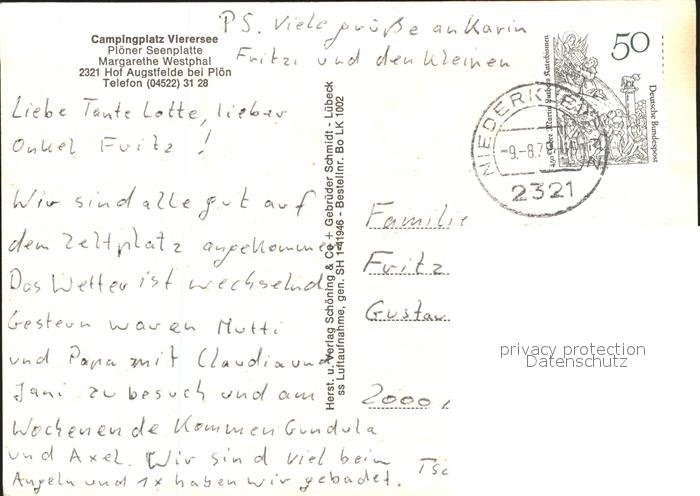 PS. Viele grüße an Karin
Fritzi und den Kleinen
Campingplatz Vierersee
Plöner Seenplatte
Margarethe Westphal
2321 Hof Augstfelde bei Plön
Telefon (04522) 31 28
Liebe Tante Lotte, lieber
Onkel Fritz !
Wir sind alle gut auf
dem Zeltplatz angekommen
Das Wetter ist wechselnd
Gestern waren Mutti
und Papa mit Claudia und
Jani zu besuch und am
Wochenende Kommen Gundula
und Axel. Wir sind viel beim
Angeln und 1x haben wir gebadet.
Tsc
Herst. u. Verlag Schöning & Co + Gebrüder Schmidt - Lübeck
ss Luftaufnahme, gen. SH 1-41946 - Bestellnr. Bo LK 1002
50
Deutsche Bundespost
450 Jahre Martin Luthers Katechismen
2321
Familie
Fritz
Gustav
2000
privacy protection
Datenschutz